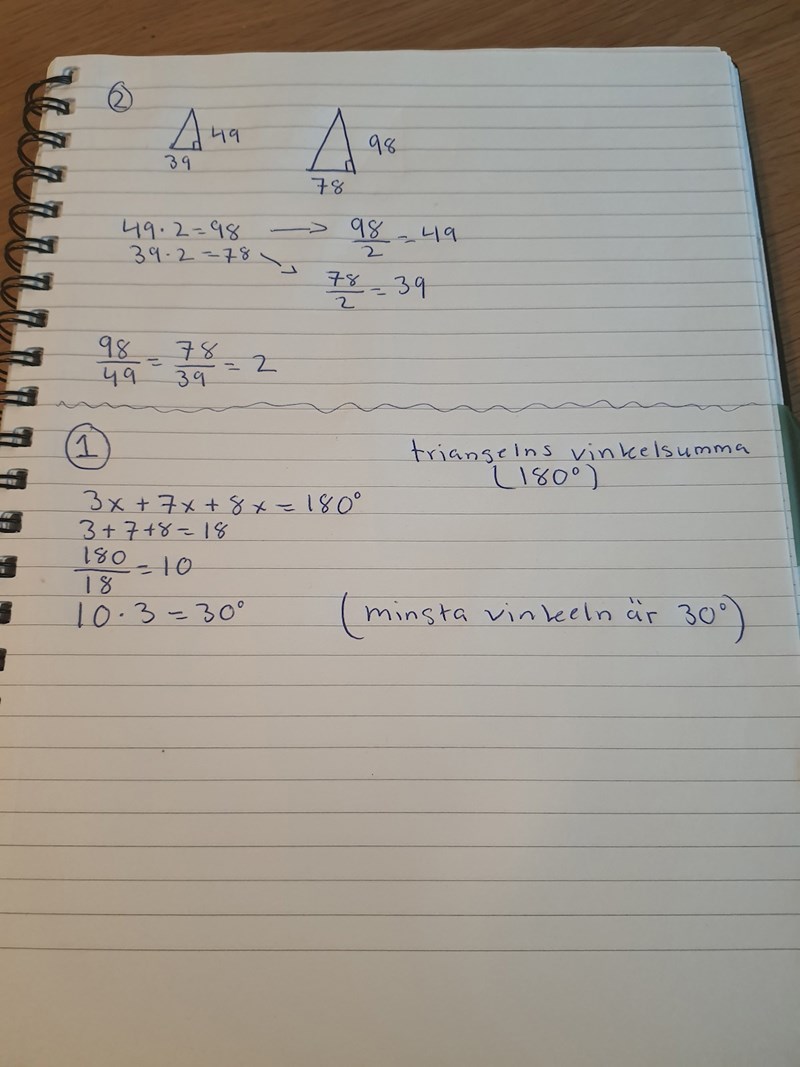 ②
49
39
98
78
49·2=98 → 98/2 = 49
39·2=78 → 78/2 = 39
98/49 = 78/39 = 2
①
triangelns vinkelsumma
(180°)
3x+7x+8x=180°
3+7+8=18
180/18=10
10·3=30° (minsta vinkeln är 30°)